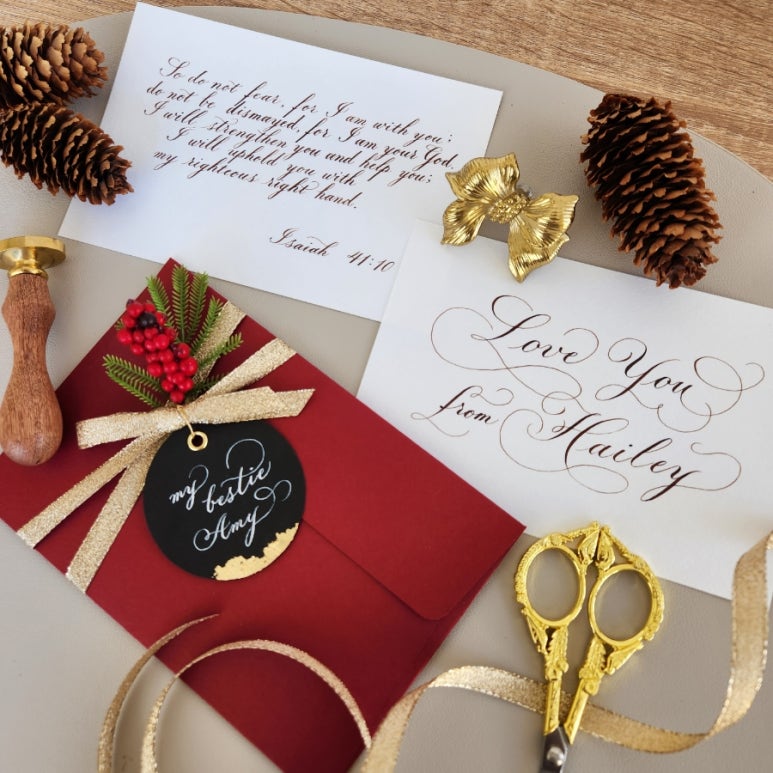 So do not fear, for I am with you;
do not be dismayed, for I am your God.
I will strengthen you and help you;
I will uphold you with
my righteous right hand.
Isaiah 41:10
Love You
from Hailey
my
bestie
Amy